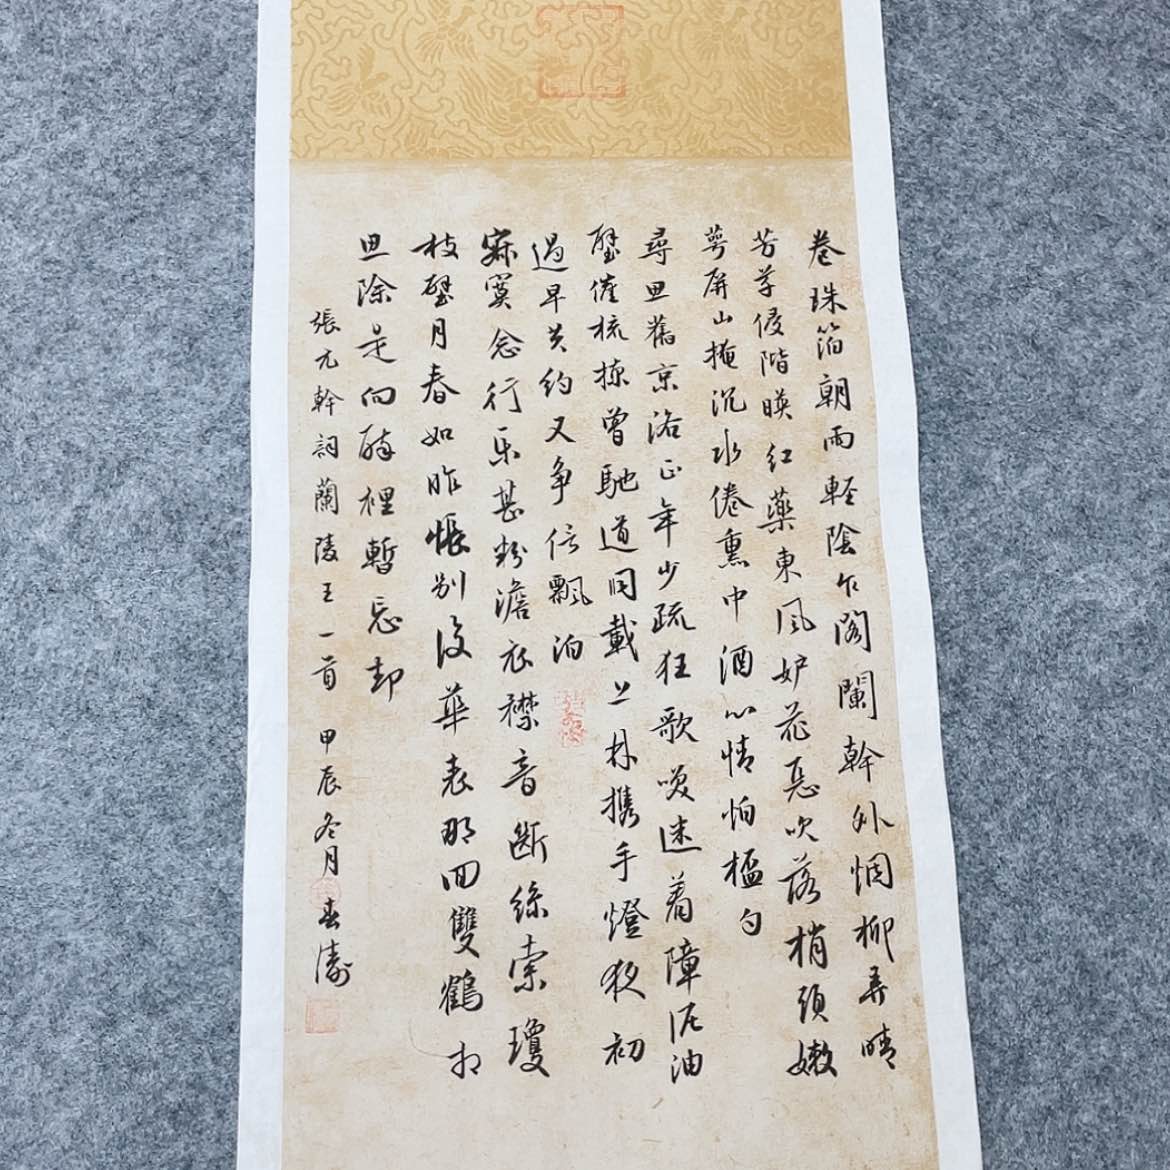 卷珠箔朝雨輕陰乍閣闌幹外烟柳弄晴
芳草侵階暎紅藥東風妒花惡吹落梢頭嫩
萼屏山掩沉水倦熏中酒心情怕桮勺
尋思舊京洛正年少疏狂歌咲迷着障泥油
壁催梳掠曾馳道同載上林攜手燈夜初
過早共約又爭信飄泊
寂寞念行乐甚粉澹衣襟音斷絲索瓊
枝璧月春如昨悵别後華表那回雙鶴相
思除是向醉裡暫忘却
張元幹詞蘭陵王一首 甲辰冬月 春濤